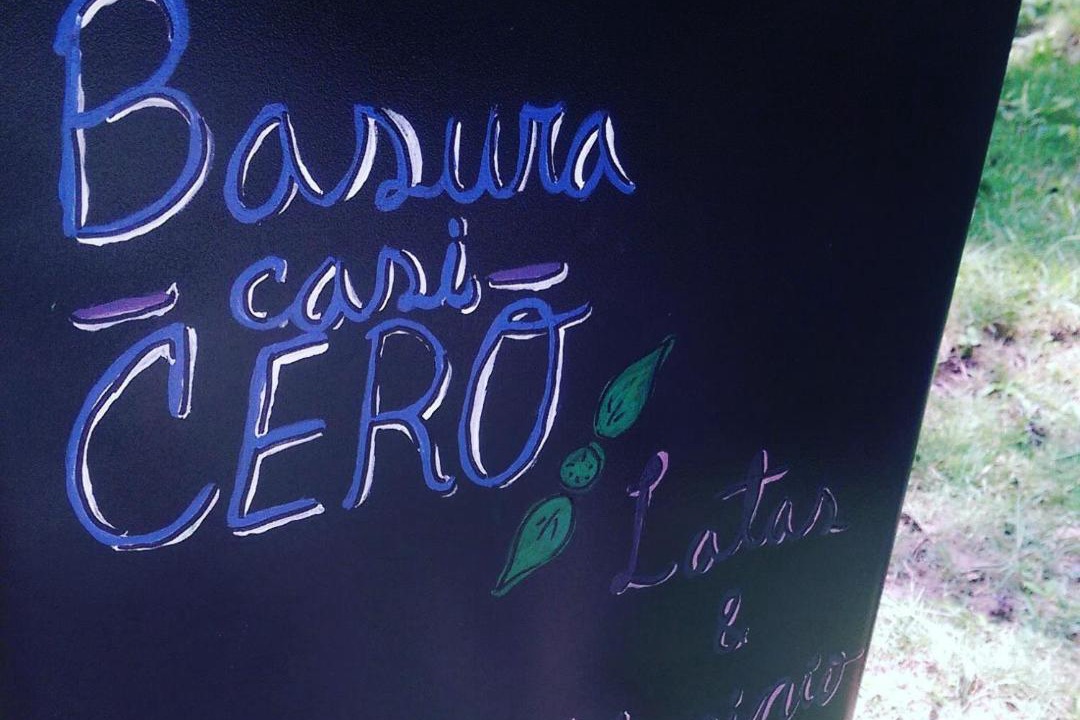 Basura
casi
CERO
Latas
&